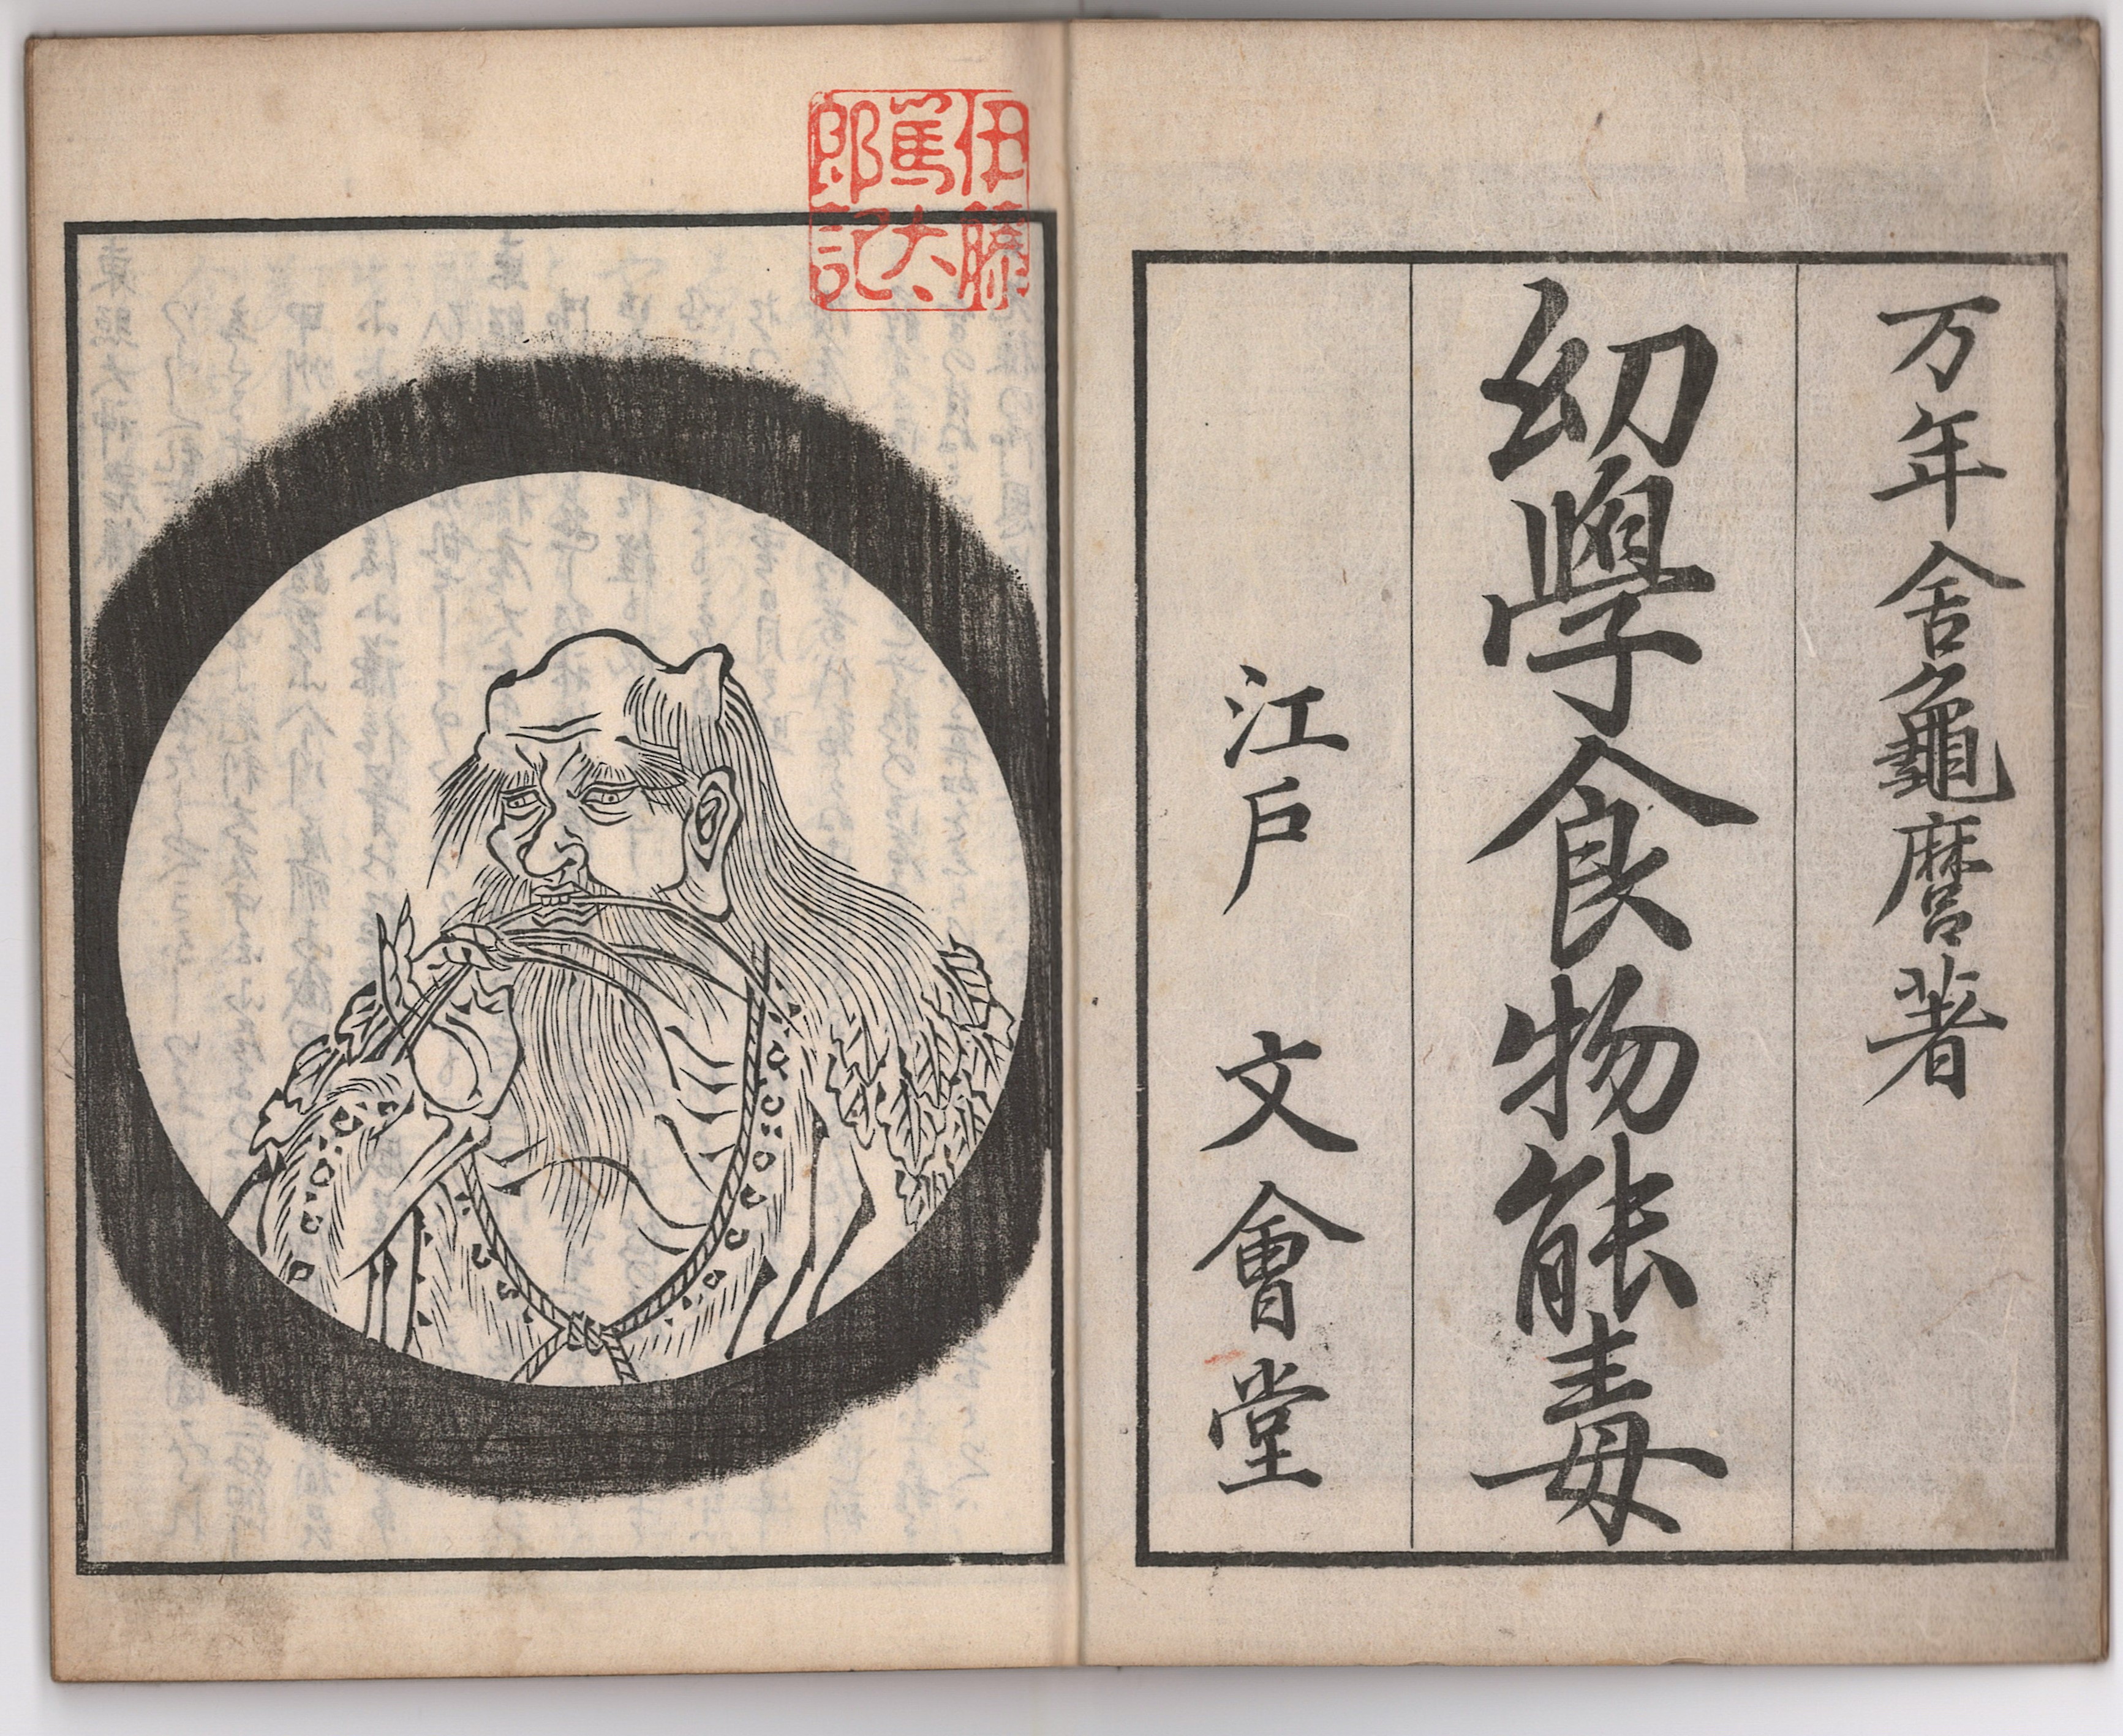 万年舍龜麿著
幼學食物能毒
江戸 文會堂
伊藤
篤太
郎記